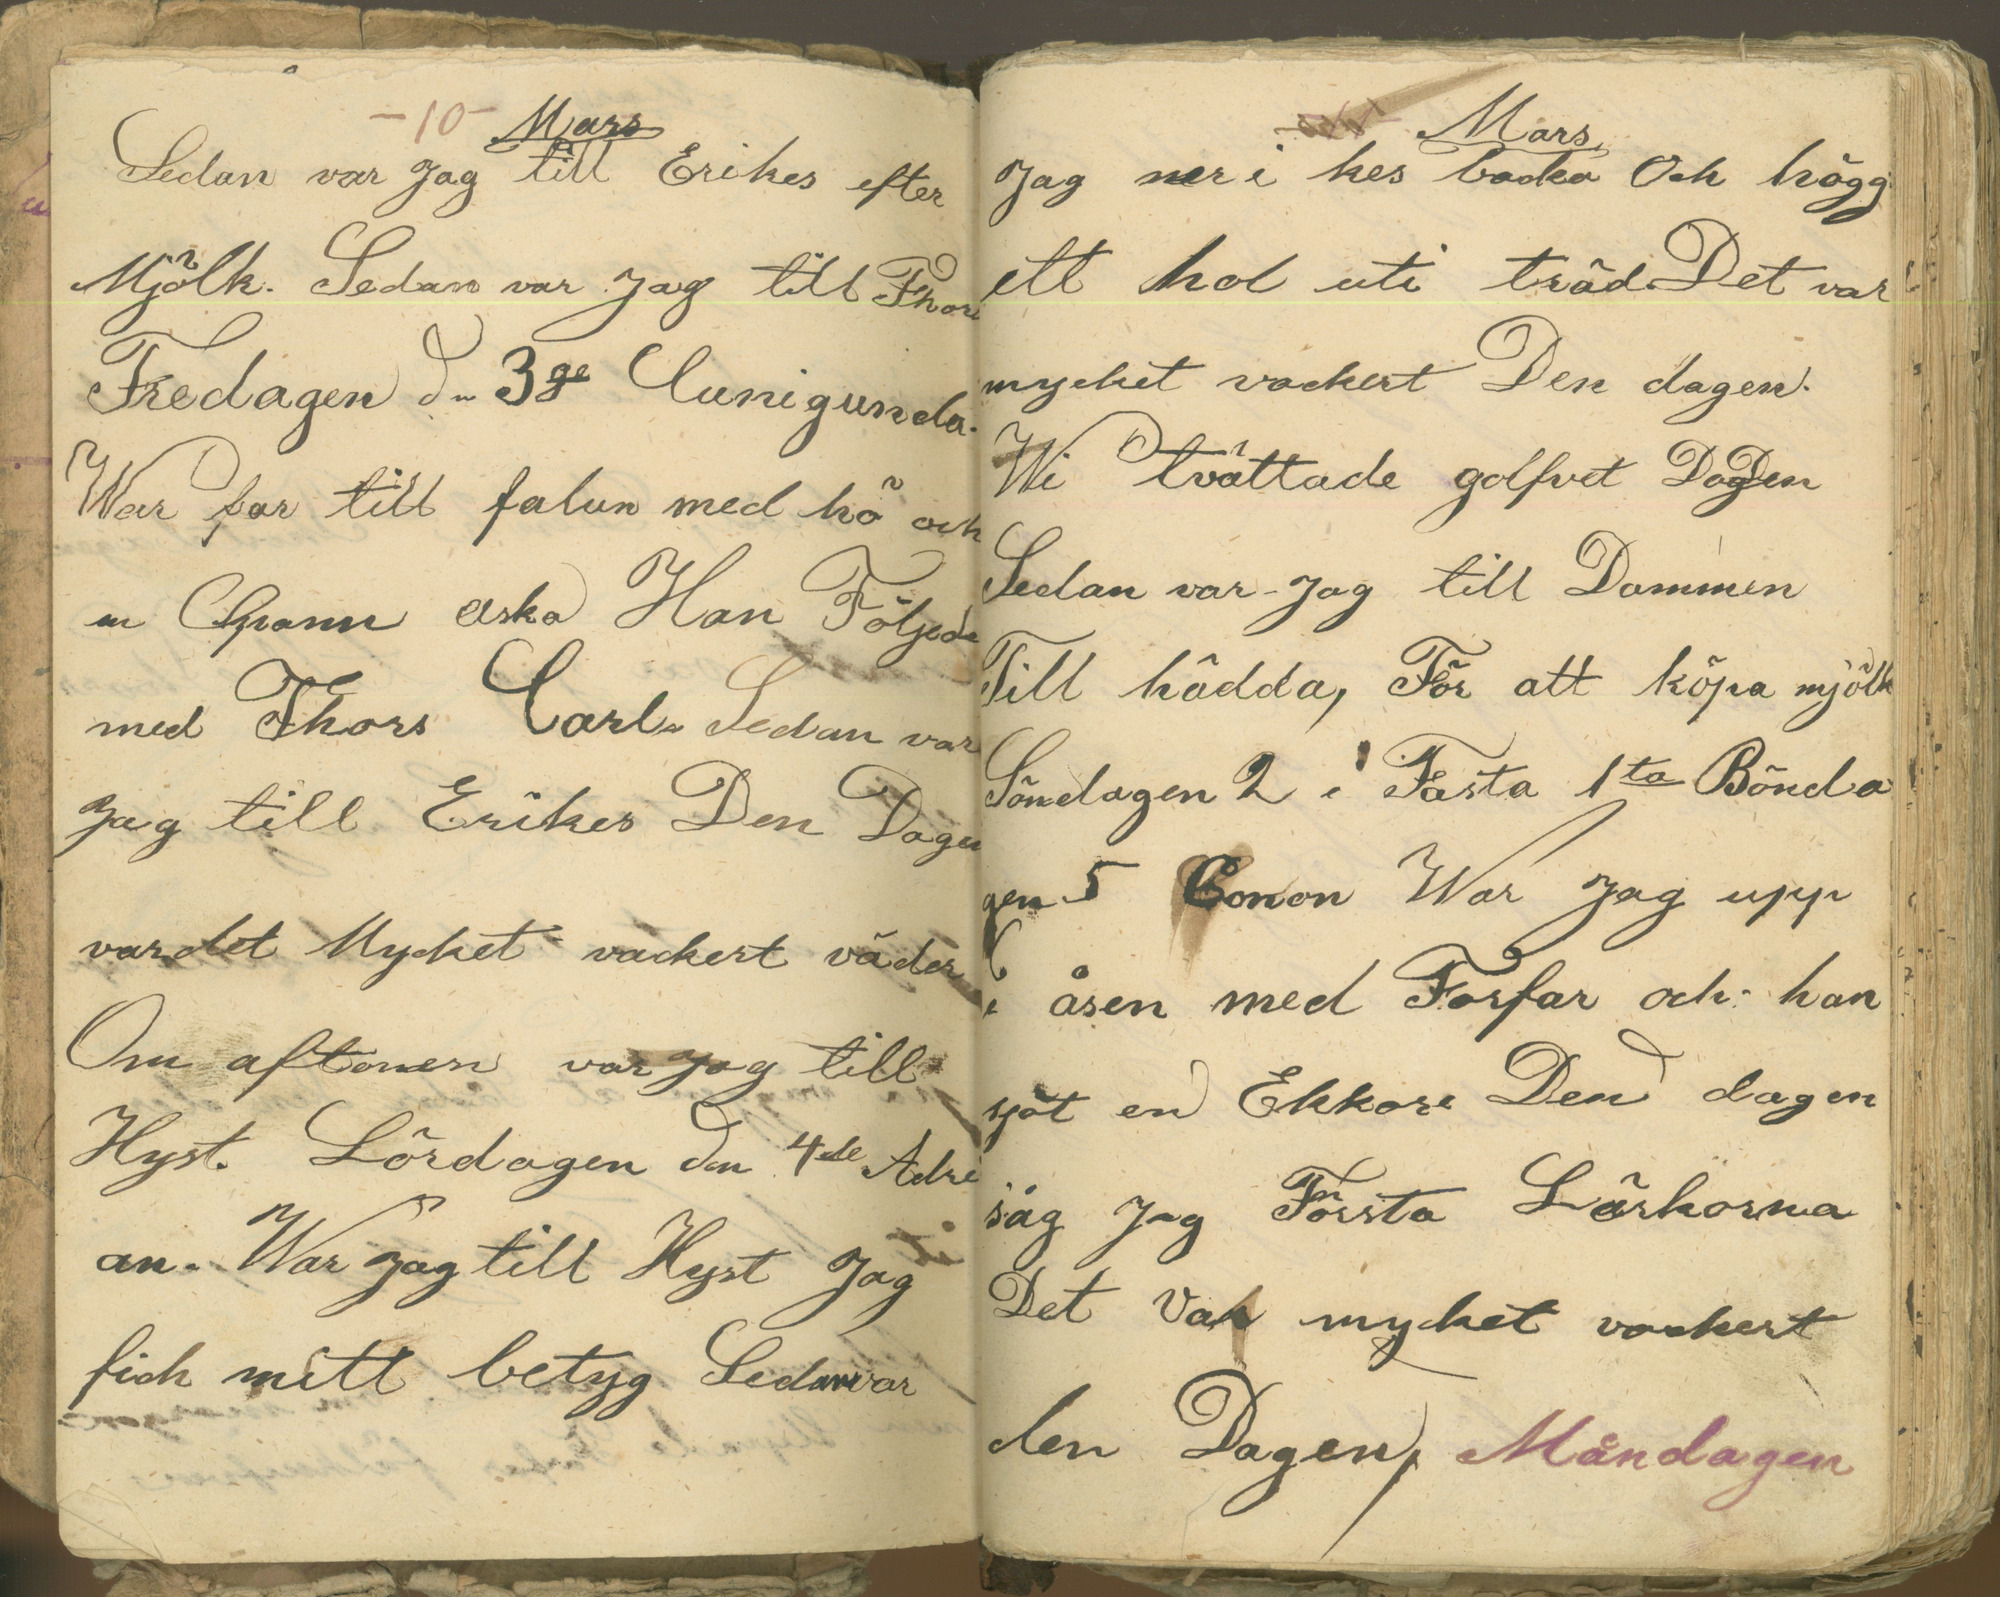 -10- Mars
Sedan var Jag till Erikes efter
Mjölk. Sedan var Jag till Thors
Fredagen dn 3ge Cunigunda.
War far till falun med hö och
en Spann aska Han Följede
med Thors Carl. Sedan var
Jag till Erikes Den Dagen
var det Mycket vackert väder
Om aftonen var Jag till
Hyst. Lördagen den 4de Adri
an. War Jag till Hyst Jag
fick mitt betyg Sedan var
Mars.
Jag ner i kes backa Och högg
ett hol uti träd Det var
mycket vackert Den dagen.
Wi tvättade golfvet Dagen
Sedan var Jag till Dammen
Till hädda, För att köpa mjölk
Söndagen 2 i Fasta 1ta Bönda
gen 5 Conon War Jag upp
i åsen med Forfar och han
sjöt en Ekkore Den dagen
såg Jag Första Lärkorna
Det Var mycket vackert
den Dagen, Måndagen